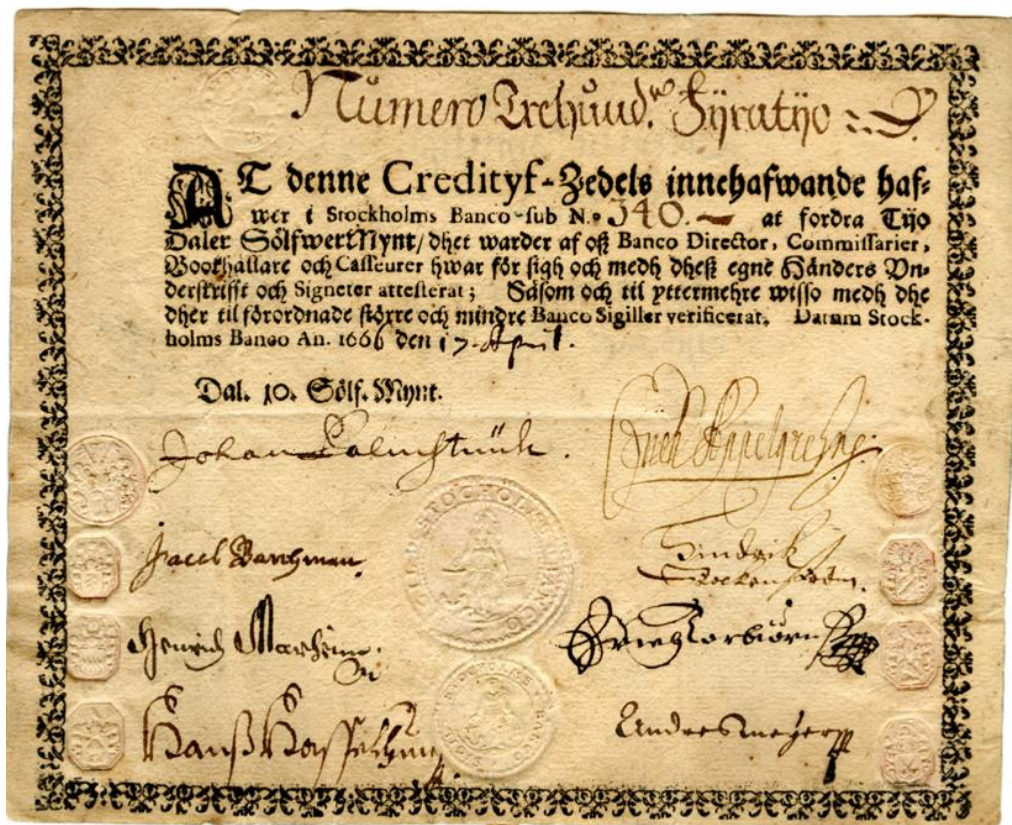 Numero Trehund. Fÿratijo
AT denne Credityf-Zedels innehafwande haf-
wer i Stockholms Banco sub N.o 340. — at fordra Tijo
Daler SölfwerMynt/ dhet warder af oß Banco Director, Commissarier,
Bookhållare och Casseurer hwar för sigh och medh dheß egne Händers Vn-
derskrifft och Signeter attesterat; Såsom och til yttermehre wisso medh dhe
dher til förordnade större och mindre Banco Sigiller verificerat, Datum Stock-
holms Banco An. 1666 den 17. April.
Dal. 10. Sölf. Mynt.
Johan Palmstruch.
Jacob
Hindrik
Henrich
Hanß
Andres meyer